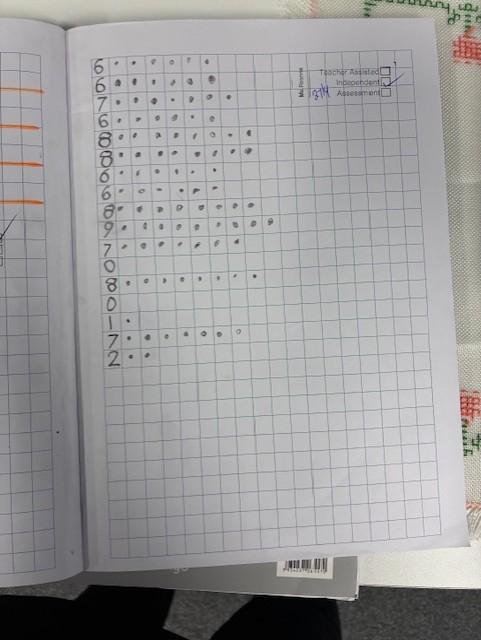 6
6
7
6
8
8
6
6
8
9
7
0
8
0
1
7
2
Ms Roome
Teacher Assisted
Independent
Assessment